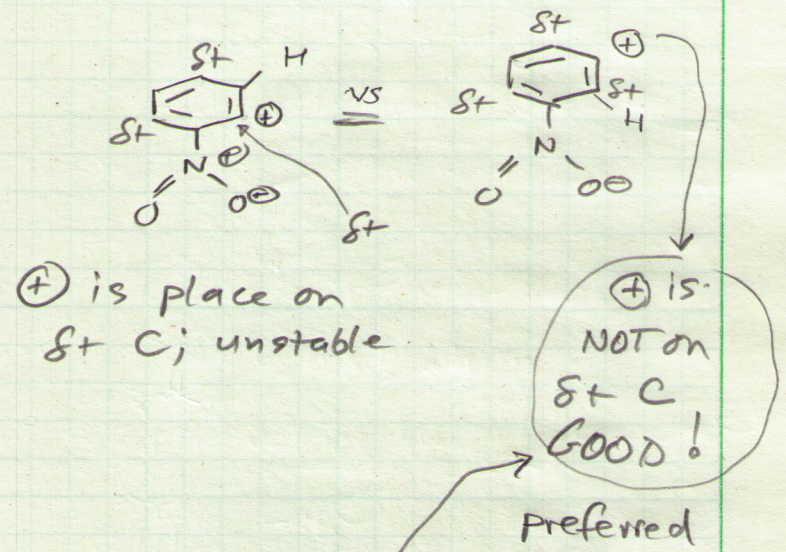 δ+ H
⊕
δ+
N ⊕
O O⊖
δ+
vs
δ+ ⊕
δ+ δ+
H
N
O O⊖
⊕ is place on
δ+ C; unstable
⊕ is
NOT on
δ+ C
GOOD!
preferred